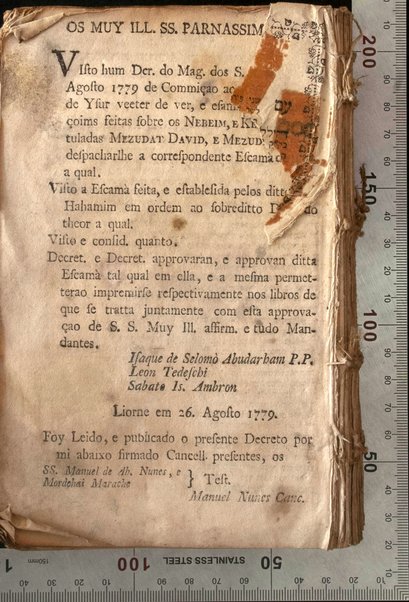 OS MUY ILL. SS. PARNASSIM
Visto hum Der. do Mag. dos S.
Agosto 1779 de Commiçao ao
de Ysur veeter de ver, e
çoims feitas sobre os NEBEIM, E KE
tuladas MEZUDAT DAVID, E MEZUD
despacharlhe a correspondente Escama
a qual.
Visto a Escamà feita, e establesida pelos ditt
Hahamim em ordem ao sobreditto do
theor a qual.
Visto e consid. quanto.
Decret. e Decret. approvaran, e approvan ditta
Escamà tal qual em ella, e a mesma permet-
terao impremirse respectivamente nos libros de
que se tratta juntamente com esta approva-
çao de S. S. Muy Ill. affirm. e tudo Man-
dantes.
Isaque de Selomò Abudarham P. P.
Leon Tedeschi
Sabato Is. Ambron
Liorne em 26. Agosto 1779.
Foy Leido, e publicado o presente Decreto por
mi abaixo firmado Cancell. presentes, os
SS. Manuel de Ab. Nunes, e
Mordehai Marache } Test.
Manuel Nunes Canc.
200
150
100
50
1
150mm
100
STAINLESS STEEL
50